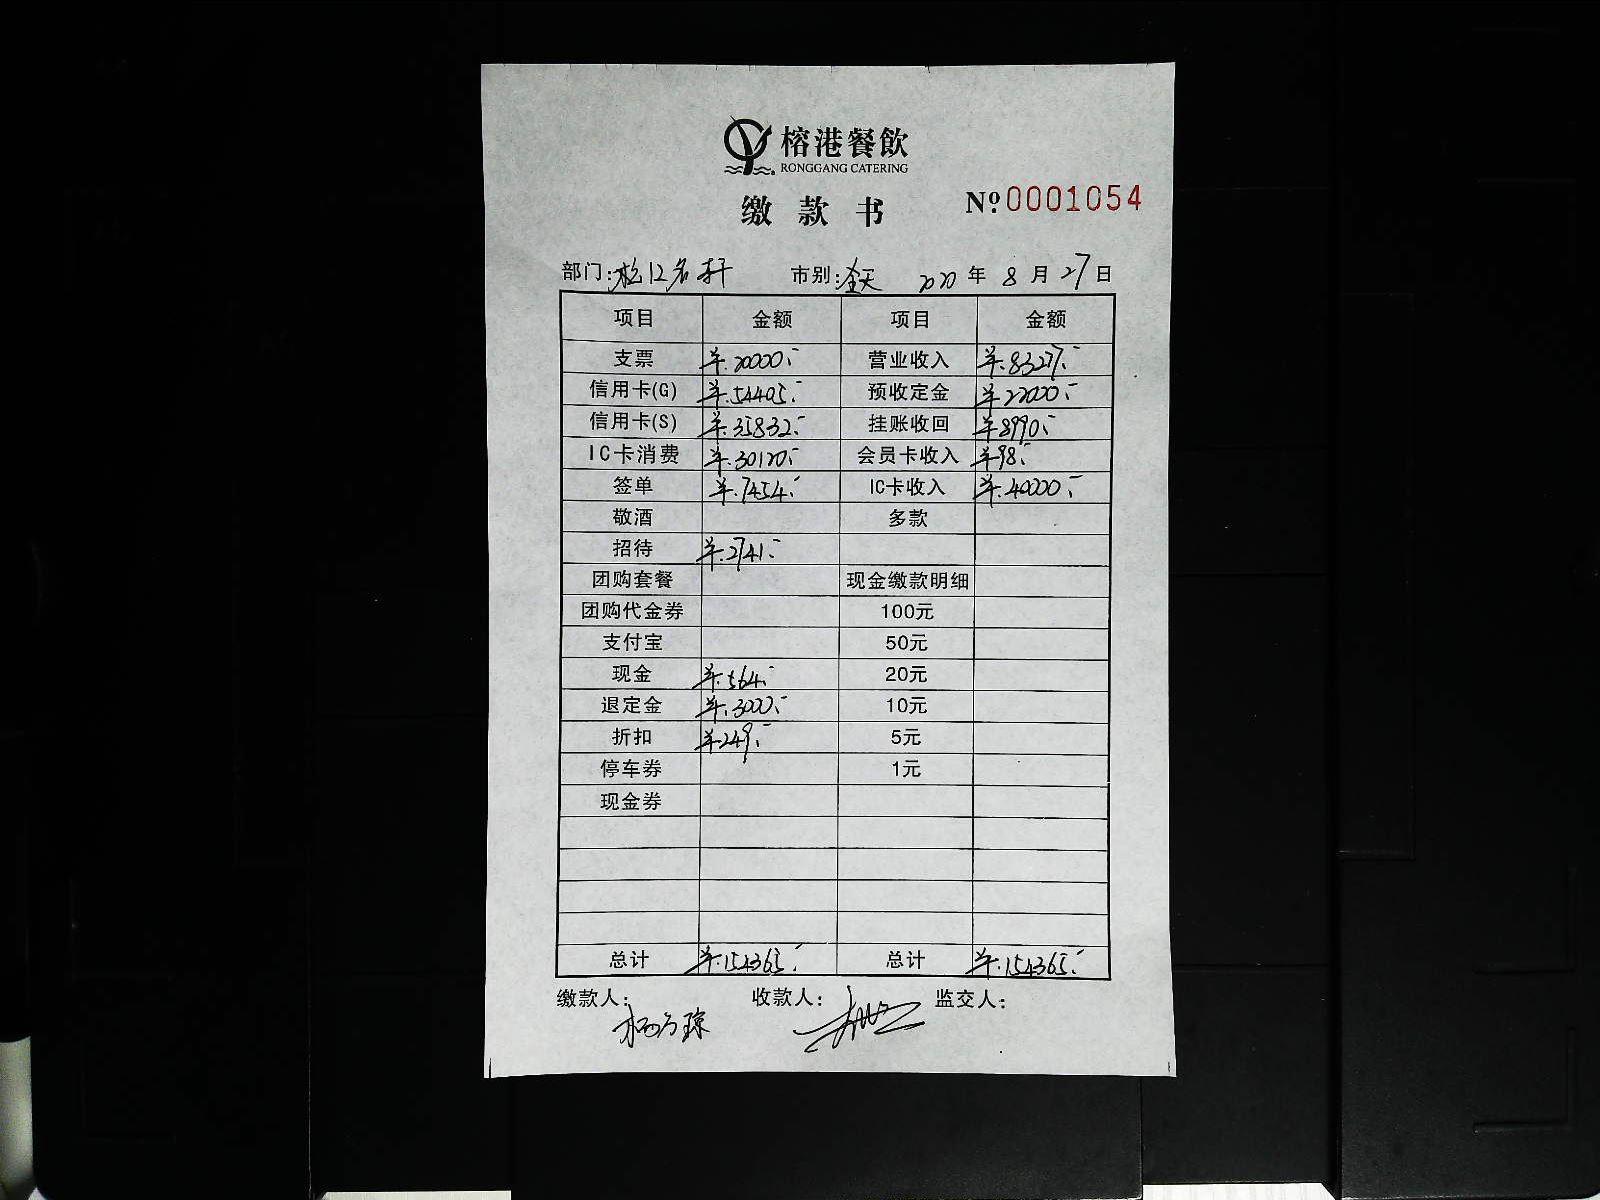 榕港餐飲
RONGGANG CATERING
缴款书 Nº:0001054
部门:松江名轩 市别:全天 2020年8月27日
项目 金额 项目 金额
支票 ¥.20000.- 营业收入 ¥.83277.-
信用卡(G) ¥.54405.- 预收定金 ¥22000.-
信用卡(S) ¥.35832.- 挂账收回 ¥8990.-
IC卡消费 ¥.30120.- 会员卡收入 ¥98.-
签单 ¥.7454.- IC卡收入 ¥.40000.-
敬酒 多款
招待 ¥.2741.-
团购套餐 现金缴款明细
团购代金券 100元
支付宝 50元
现金 ¥.564.- 20元
退定金 ¥.3000.- 10元
折扣 ¥.249.- 5元
停车券 1元
现金券
总计 ¥.154365.- 总计 ¥.154365.-
缴款人: 收款人: 监交人: